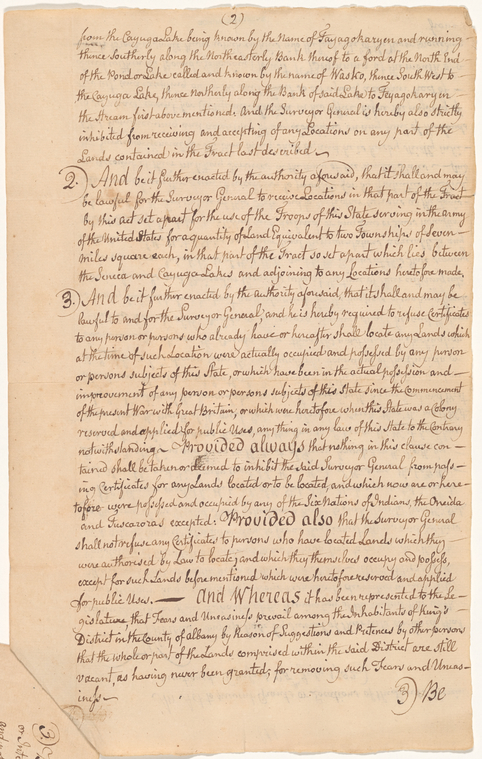 (2)
from the Cayuga Lake being known by the Name of Tayagokaryen and running
thence Southerly along the Northeasterly Bank thereof to a ford at the North End
of the Pond or Lake called and known by the name of Wasko, thence South West to
the Cayuga Lake, thence Northerly along the Bank of said Lake to Teyagokaryen
the Stream first above mentioned. And the Surveyor General is hereby also strictly
inhibited from receiving and accepting of any Locations on any part of the
Lands contained in the Tract last described
2.) And be it further enacted by the authority aforesaid, that it shall and may
be lawful for the Surveyor General to receive Locations in that part of the Tract
by this act set apart for the use of the Troops of this State serving in the army
of the United States for a quantity of Land Equivalent to two Townships of Seven
miles square each, in that part of the Tract so set apart which lies between
the Seneca and Cayuga Lakes and adjoining to any Locations heretofore made.
3.) And be it further enacted by the authority aforesaid, that it shall and may be
lawful to and for the Surveyor General, and he is hereby required to refuse Certificates
to any person or persons who already have or hereafter shall locate any Lands which
at the time of such Location were actually occupied and possessed by any person
or persons subjects of this State, or which have been in the actual possession and
improvement of any person or persons subjects of this State since the Commencement
of the present War with Great Britain, or which were heretofore when this State was a Colony
reserved and applied for public Uses, any thing in any law of this State to the Contrary
notwithstanding. Provided always that nothing in this clause con-
tained shall be taken or deemed to inhibit the said Surveyor General from pass-
ing Certificates for any Lands located or to be located, and which now are or here-
tofore were possessed and occupied by any of the Six Nations of Indians, the Oneida
and Tuscaroras excepted: Provided also that the Surveyor General
shall not refuse any Certificates to persons who have located Lands which they
were authorised by Law to locate, and which they themselves occupy and possess,
except for such Lands before mentioned which were heretofore reserved and applied
for public Uses. — And Whereas it has been represented to the Le-
gislature, that Fears and Uneasiness prevail among the Inhabitants of King's
District in the County of Albany by Reason of Suggestions and Pretences by other persons
that the whole or part of the Lands comprised within the said District are still
vacant, as having never been granted; for removing such Fears and Uneas-
iness
3) Be